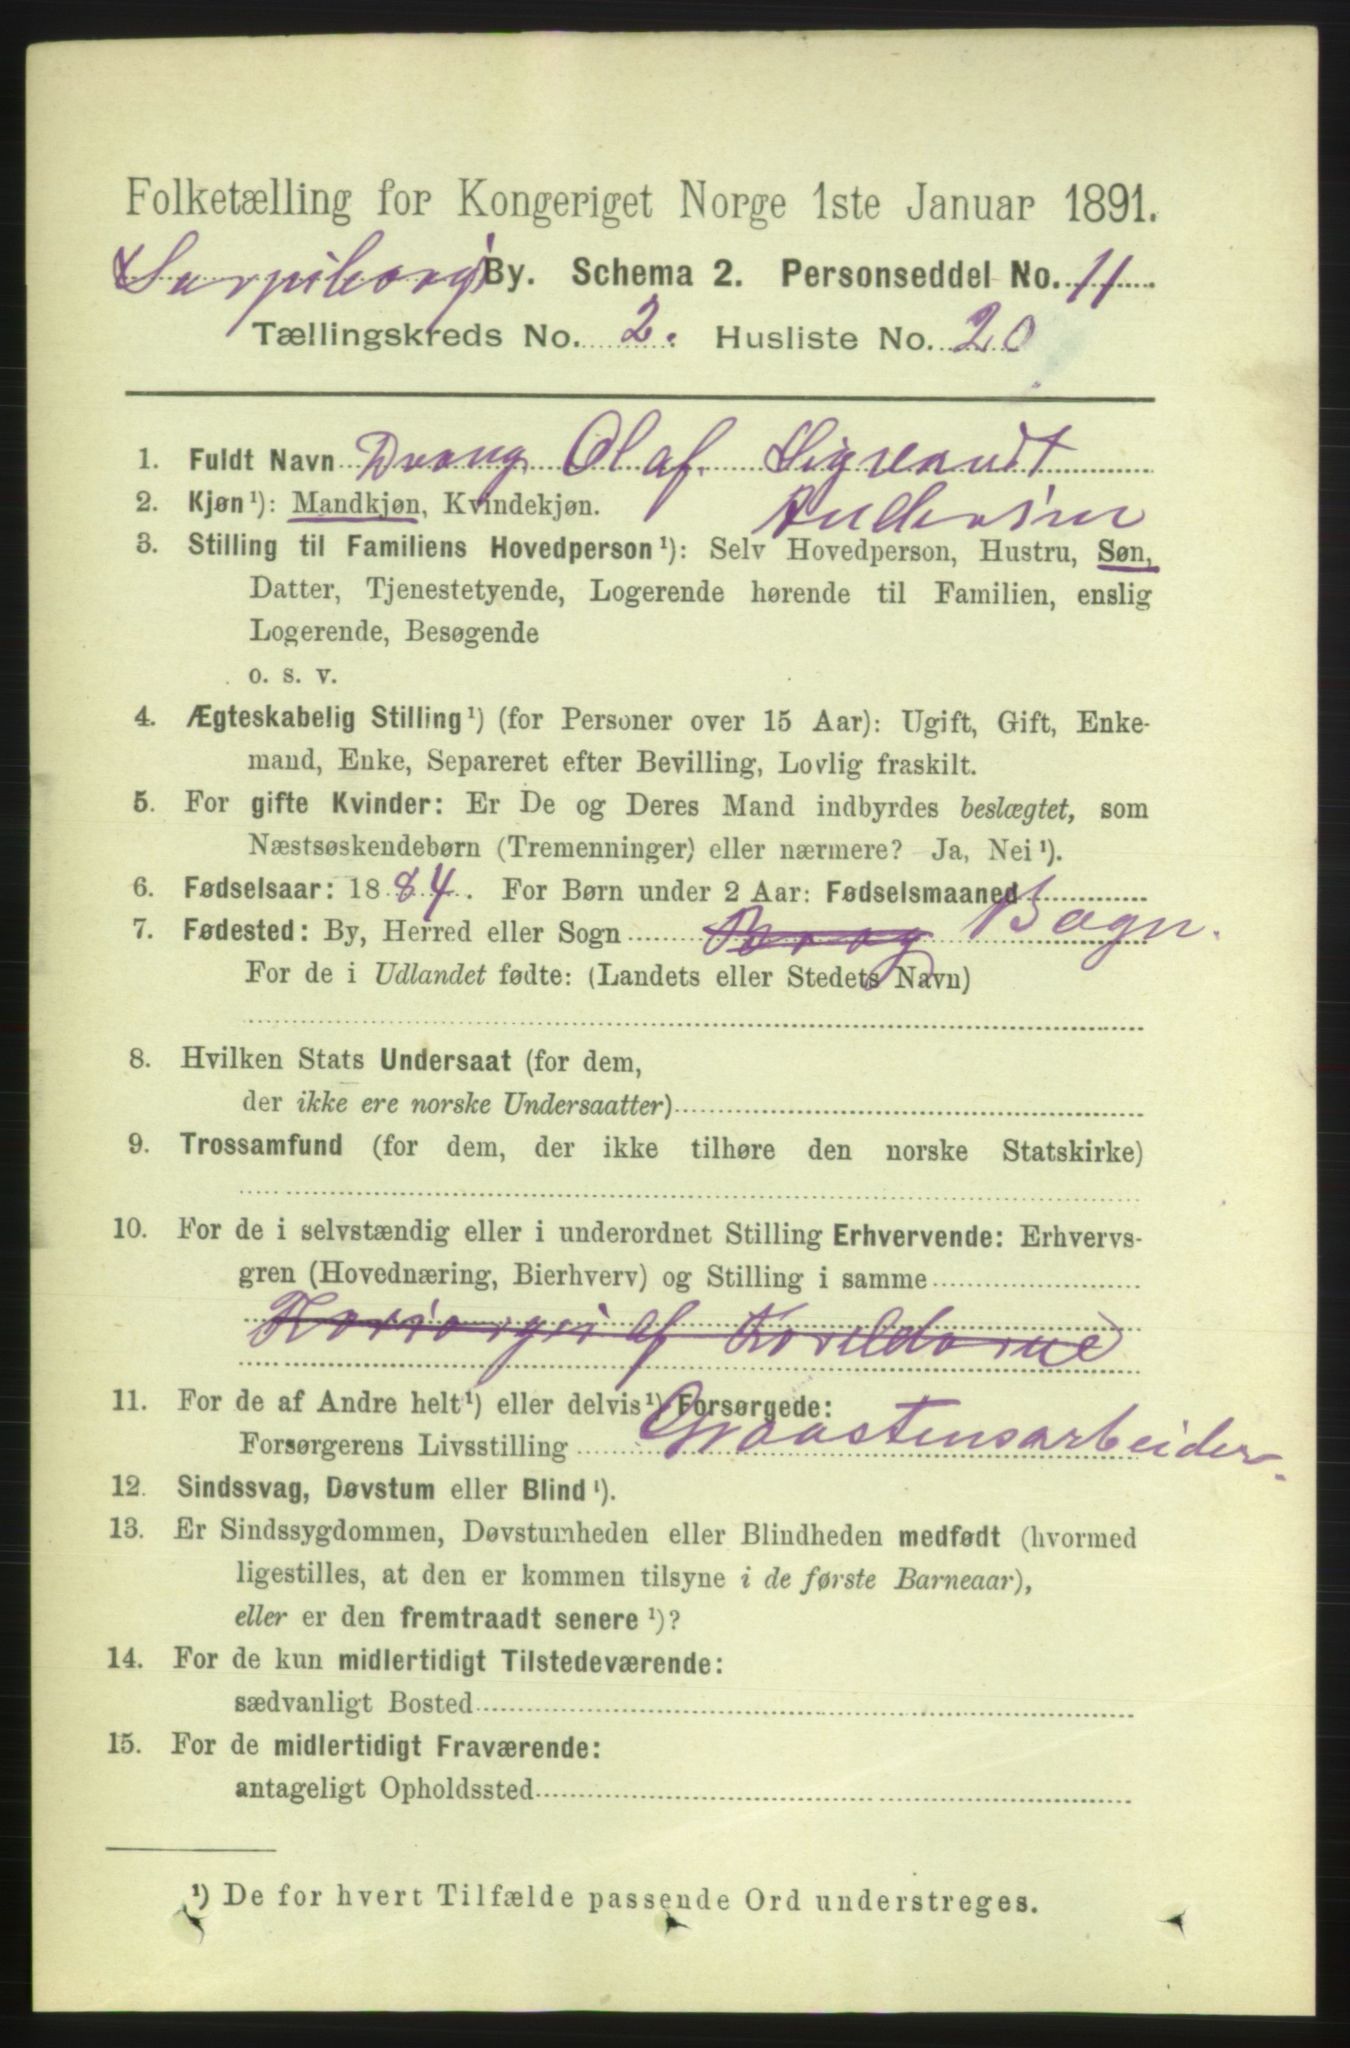 Folketælling for Kongeriget Norge 1ste Januar 1891.
Sarpsborg By. Schema 2. Personseddel No. 11
Tællingskreds No. 2. Husliste No. 20
1. Fuldt Navn Dreng Olaf Sigvardt
Andersen
2. Kjøn¹): Mandkjøn, Kvindekjøn.
3. Stilling til Familiens Hovedperson¹): Selv Hovedperson, Hustru, Søn,
Datter, Tjenestetyende, Logerende hørende til Familien, enslig
Logerende, Besøgende
o. s. v.
4. Ægteskabelig Stilling¹) (for Personer over 15 Aar): Ugift, Gift, Enke-
mand, Enke, Separeret efter Bevilling, Lovlig fraskilt.
5. For gifte Kvinder: Er De og Deres Mand indbyrdes beslægtet, som
Næstsøskendebørn (Tremenninger) eller nærmere? Ja, Nei¹).
6. Fødselsaar: 1884. For Børn under 2 Aar: Fødselsmaaned
7. Fødested: By, Herred eller Sogn Borg Bogn.
For de i Udlandet fødte: (Landets eller Stedets Navn)
8. Hvilken Stats Undersaat (for dem,
der ikke ere norske Undersaatter)
9. Trossamfund (for dem, der ikke tilhøre den norske Statskirke)
10. For de i selvstændig eller i underordnet Stilling Erhvervende: Erhvervs-
gren (Hovednæring, Bierhverv) og Stilling i samme
af
11. For de af Andre helt¹) eller delvis¹) Forsørgede:
Forsørgerens Livsstilling Graastensarbeider.
12. Sindssvag, Døvstum eller Blind¹).
13. Er Sindssygdommen, Døvstumheden eller Blindheden medfødt (hvormed
ligestilles, at den er kommen tilsyne i de første Barneaar),
eller er den fremtraadt senere¹)?
14. For de kun midlertidigt Tilstedeværende:
sædvanligt Bosted
15. For de midlertidigt Fraværende:
antageligt Opholdssted
¹) De for hvert Tilfælde passende Ord understreges.